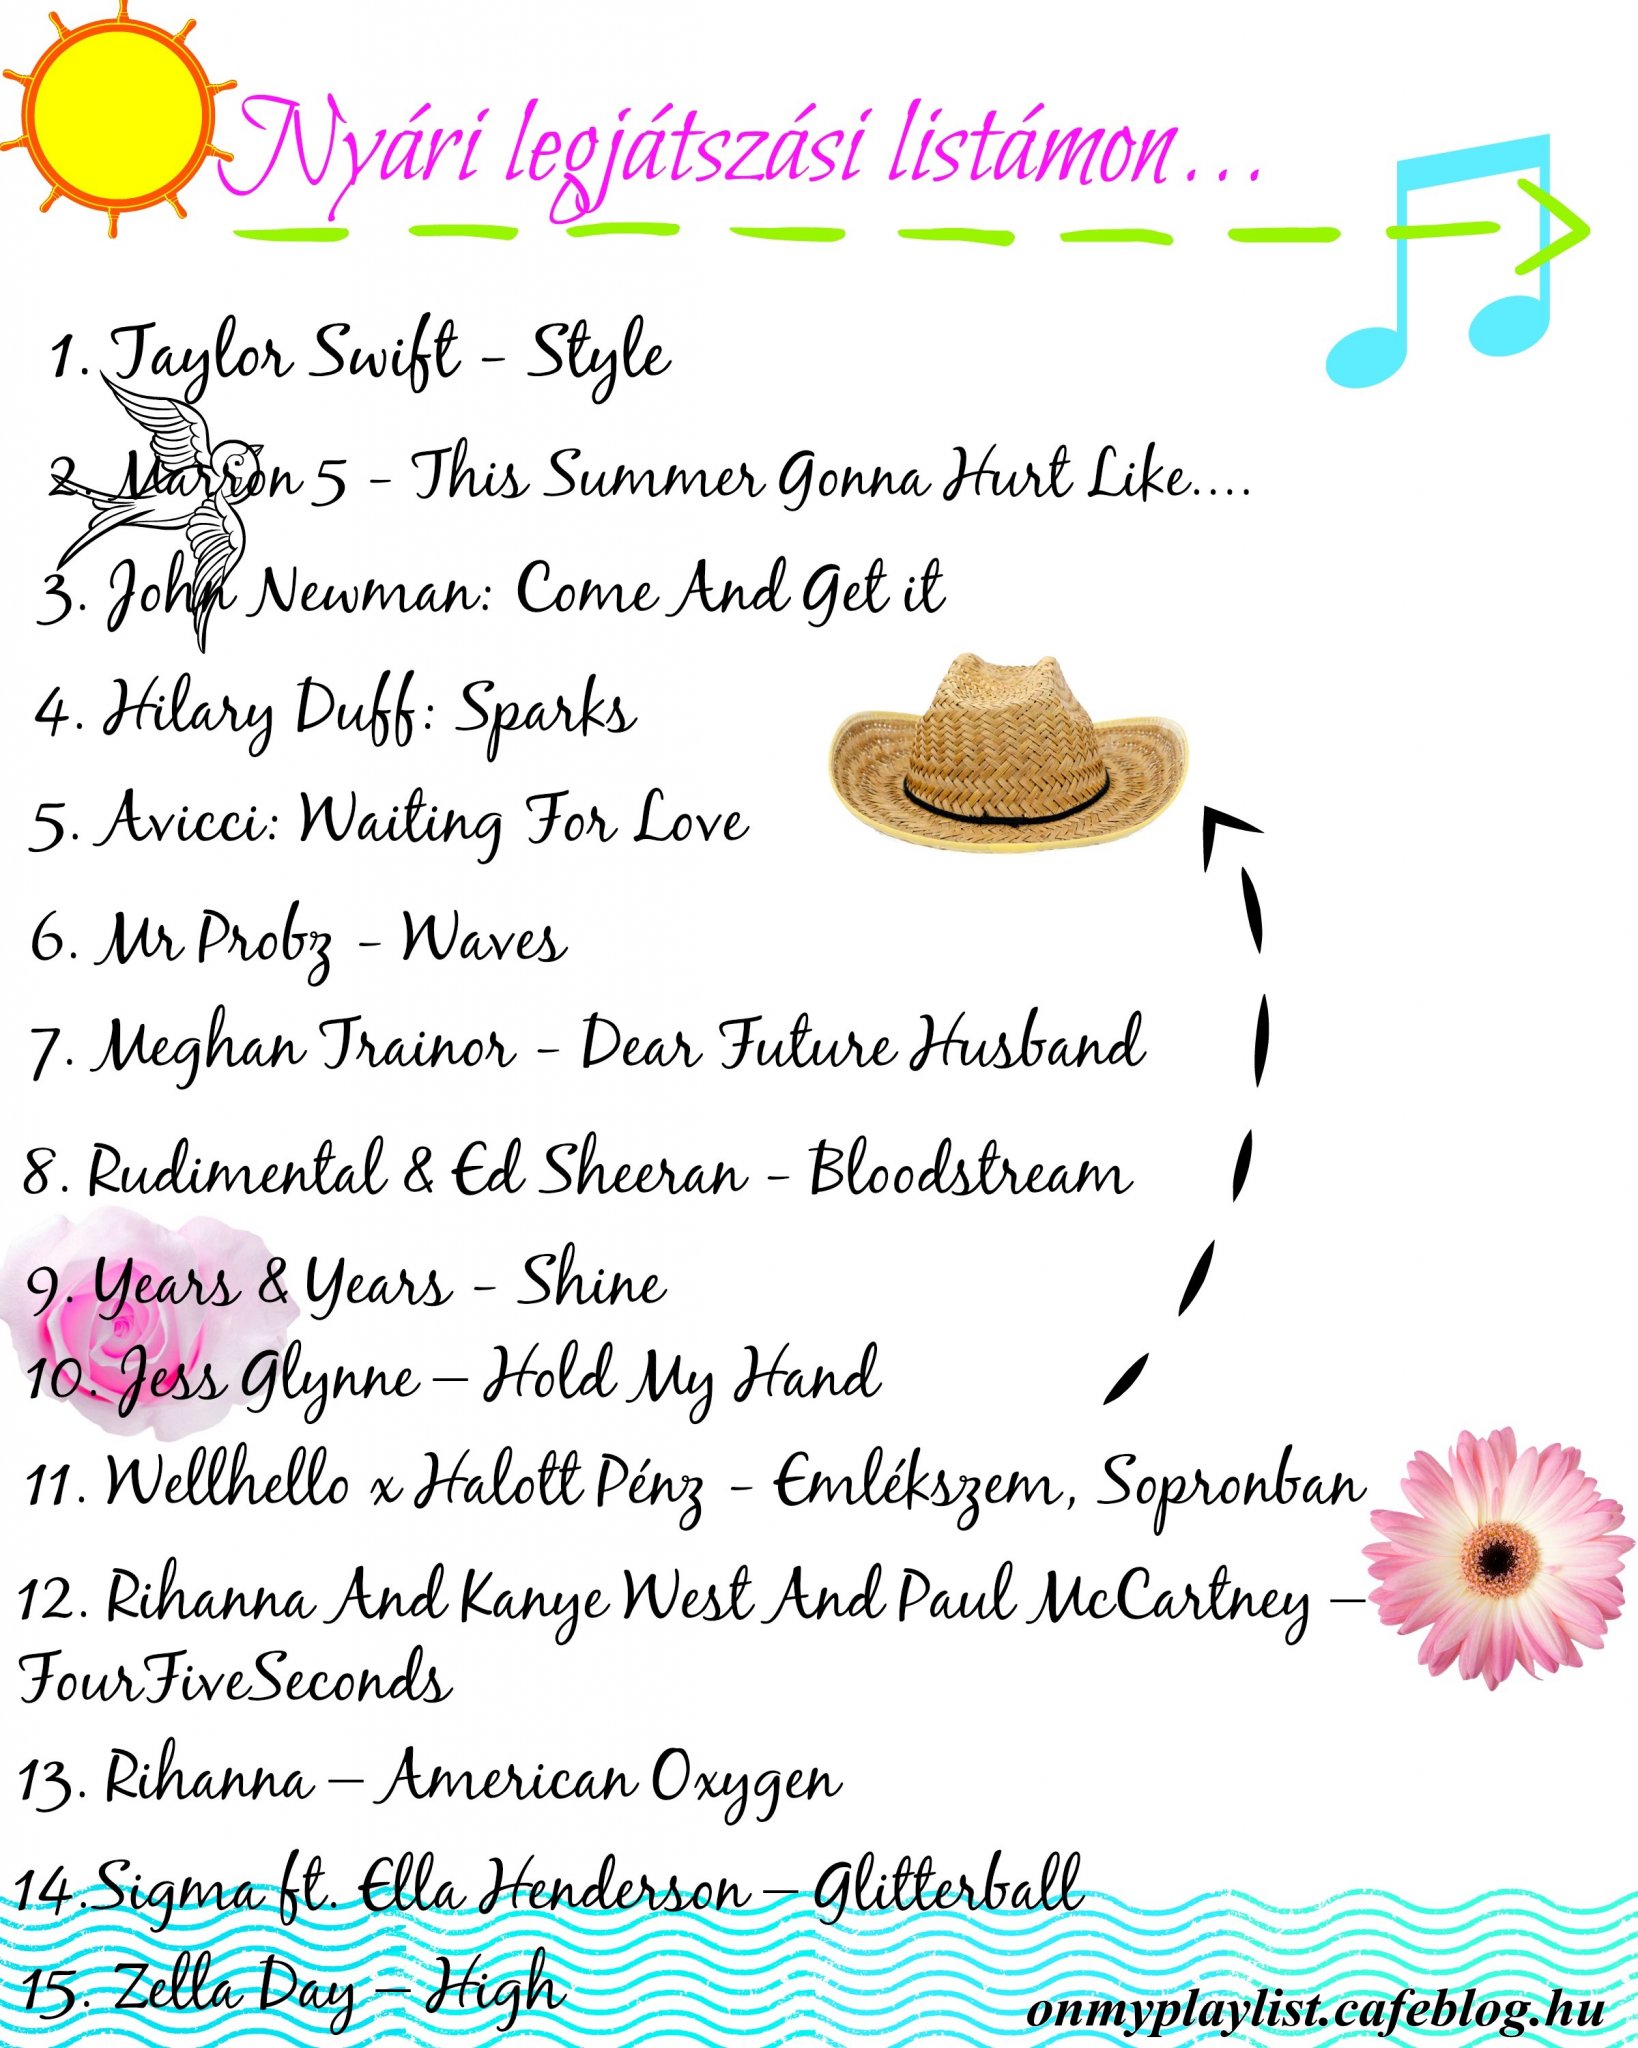 Nyári legjátszási listámon...
1. Taylor Swift - Style
2. Marron 5 - This Summer Gonna Hurt Like....
3. John Newman: Come And Get it
4. Hilary Duff: Sparks
5. Avicci: Waiting For Love
6. Mr Probz - Waves
7. Meghan Trainor - Dear Future Husband
8. Rudimental & Ed Sheeran - Bloodstream
9. Years & Years - Shine
10. Jess Glynne – Hold My Hand
11. Wellhello x Halott Pénz - Emlékszem, Sopronban
12. Rihanna And Kanye West And Paul McCartney –
FourFiveSeconds
13. Rihanna – American Oxygen
14.Sigma ft. Ella Henderson – Glitterball
15. Zella Day – High
onmyplaylist.cafeblog.hu